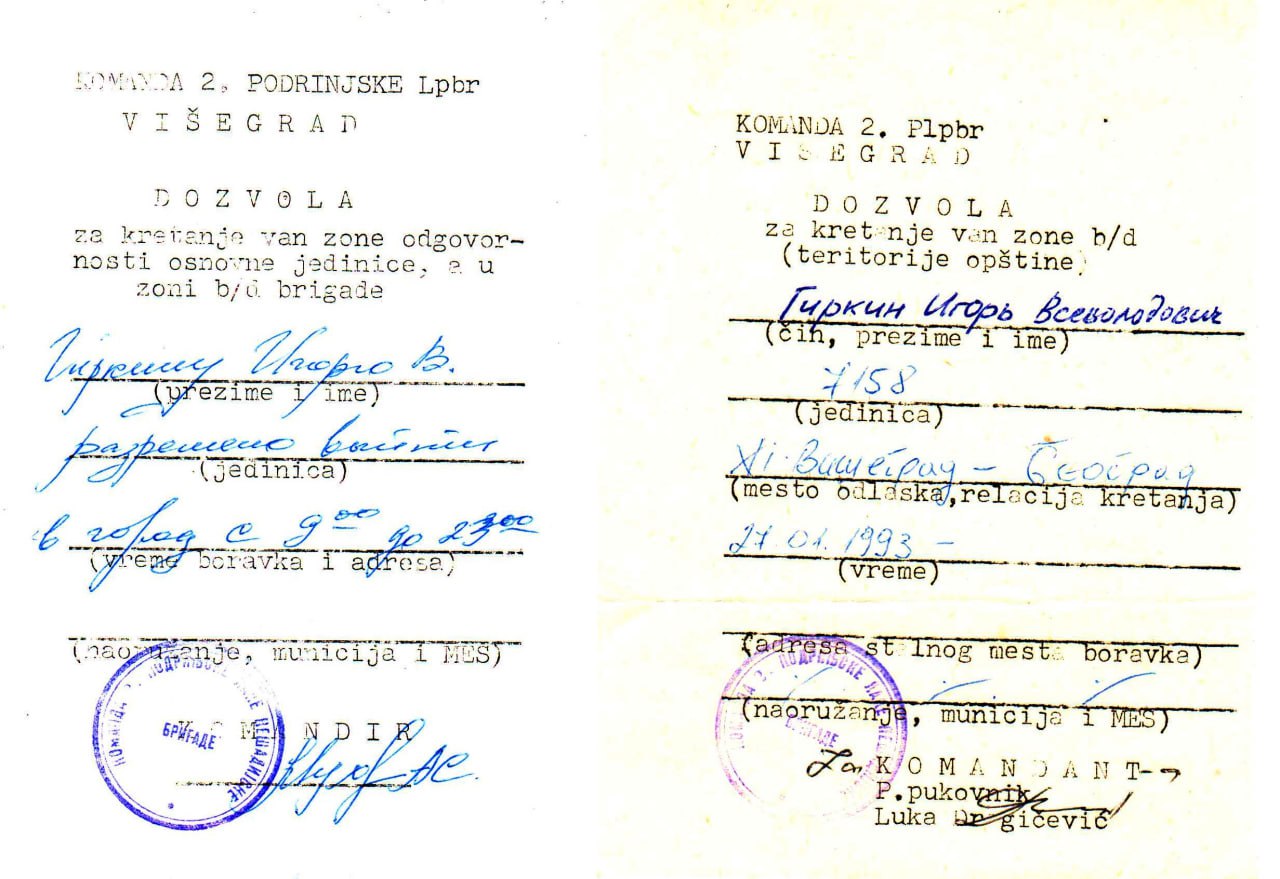 KOMANDA 2. PODRINJSKE Lpbr
VIŠEGRAD
DOZVOLA
za kretanje van zone odgovor-
nosti osnovne jedinice, a u
zoni b/d brigade
Гиркину Игорю В.
(prezime i ime)
разрешено выйти
(jedinica)
в город с 9 00 до 23 00
(vreme boravka i adresa)
(naoružanje, municija i MES)
КОМАНДА 2. ПОДРИЊСКЕ ЛАКЕ ПЕШАДИЈСКЕ
БРИГАДЕ
KOMANDIR
KOMANDA 2. Plpbr
VIŠEGRAD
DOZVOLA
za kretanje van zone b/d
(teritorije opštine)
Гиркин Игорь Всеволодович
(čin, prezime i ime)
7158
(jedinica)
Вишеград - Београд
(mesto odlaska,relacija kretanja)
27.01.1993 -
(vreme)
(adresa stalnog mesta boravka)
(naoružanje, municija i MES)
КОМАНДА 2. ПОДРИЊСКЕ ЛАКЕ ПЕШ
БРИГАДЕ
Za KOMANDANT
P.pukovnik
Luka Dragičević